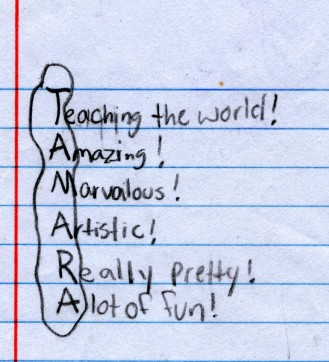 Teaching the world!
Amazing!
Marvalous!
Artistic!
Really pretty!
A lot of fun!